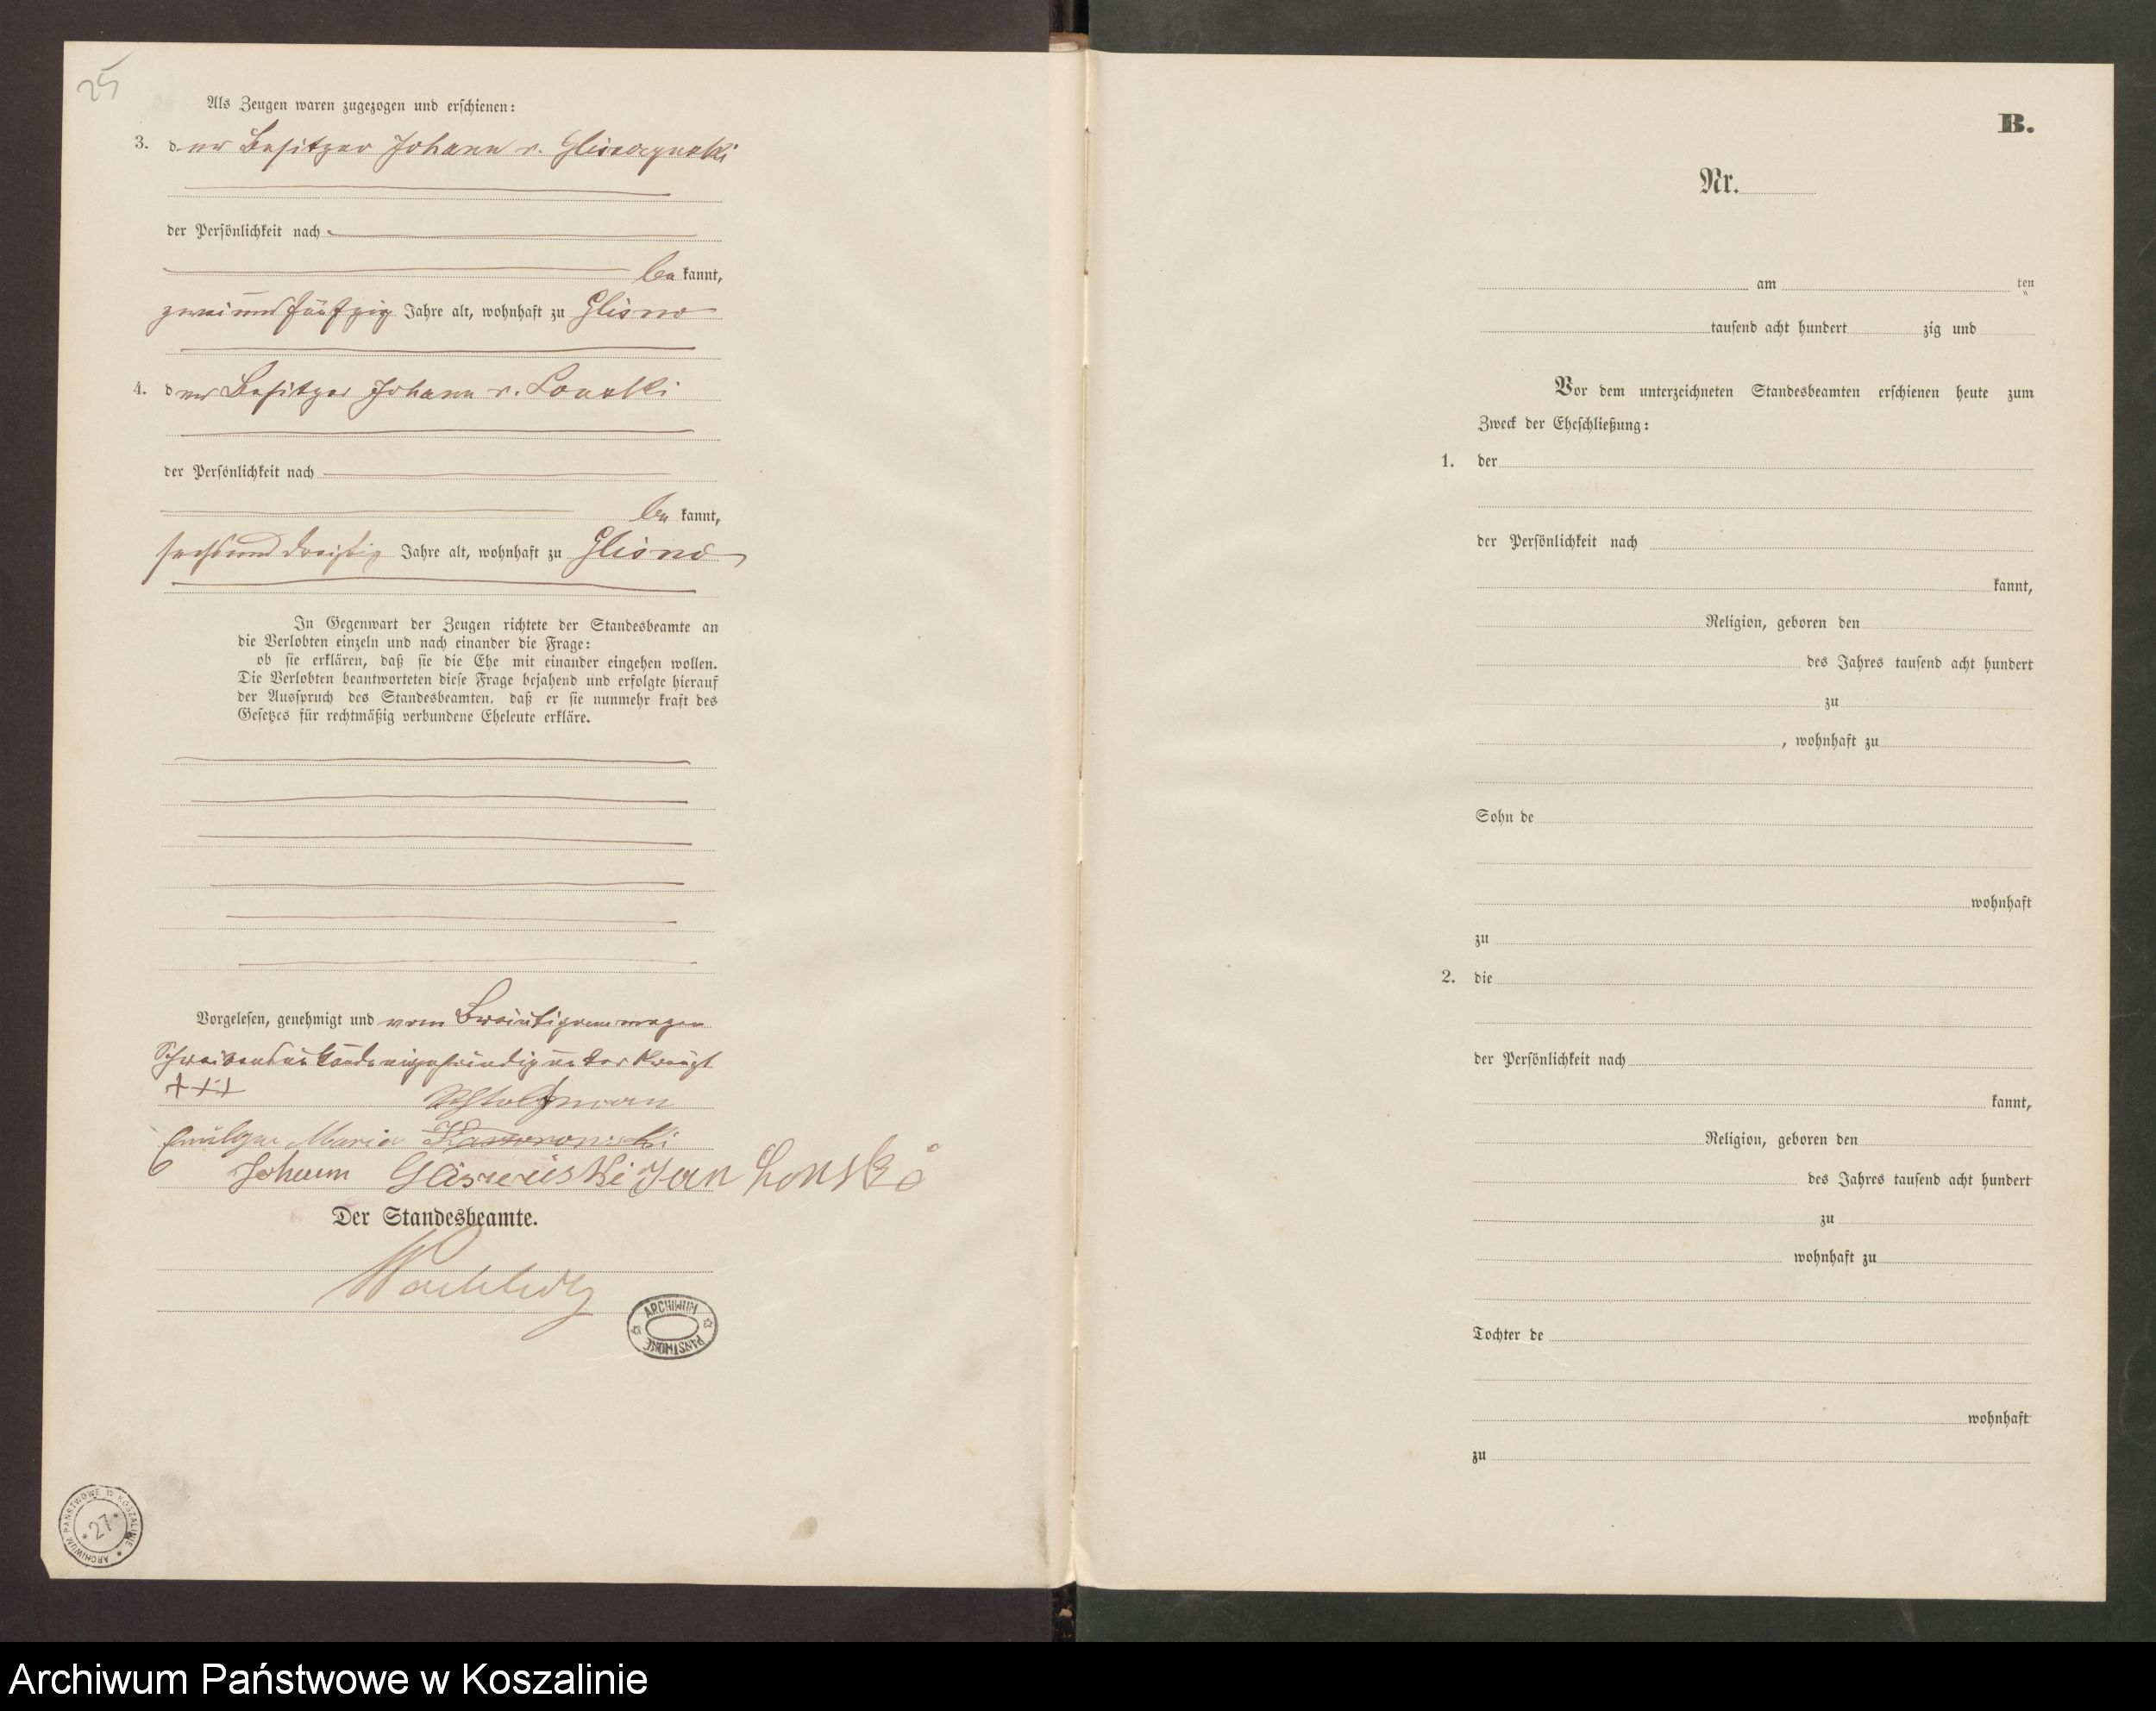 25
Als Zeugen waren zugezogen und erschienen:
3. der Besitzer Johann v.
der Persönlichkeit nach
be kannt,
zweiundfünfzig Jahre alt, wohnhaft zu Glisno
4. der Besitzer Johann v. Lonski
der Persönlichkeit nach
be kannt,
sechsunddreißig Jahre alt, wohnhaft zu Glisno
In Gegenwart der Zeugen richtete der Standesbeamte an
die Verlobten einzeln und nach einander die Frage:
ob sie erklären, daß sie die Ehe mit einander eingehen wollen.
Die Verlobten beantworteten diese Frage bejahend und erfolgte hierauf
der Ausspruch des Standesbeamten, daß er sie nunmehr kraft des
Gesetzes für rechtmäßig verbundene Eheleute erkläre.
Vorgelesen, genehmigt und vom Bräutigam wegen
Schreibensunkunde eigenhändig unterkreuzt
+++
Maria
Johann Jan Lonski
Der Standesbeamte.
ARCHIWUM PAŃSTWOWE
ARCHIWUM PAŃSTWOWE W KOSZALINIE
27
B.
Nr.
am ten
tausend acht hundert zig und
Vor dem unterzeichneten Standesbeamten erschienen heute zum
Zweck der Eheschließung:
1. der
der Persönlichkeit nach
kannt,
Religion, geboren den
des Jahres tausend acht hundert
zu
, wohnhaft zu
Sohn de
wohnhaft
zu
2. die
der Persönlichkeit nach
kannt,
Religion, geboren den
des Jahres tausend acht hundert
zu
wohnhaft zu
Tochter de
wohnhaft
zu
Archiwum Państwowe w Koszalinie